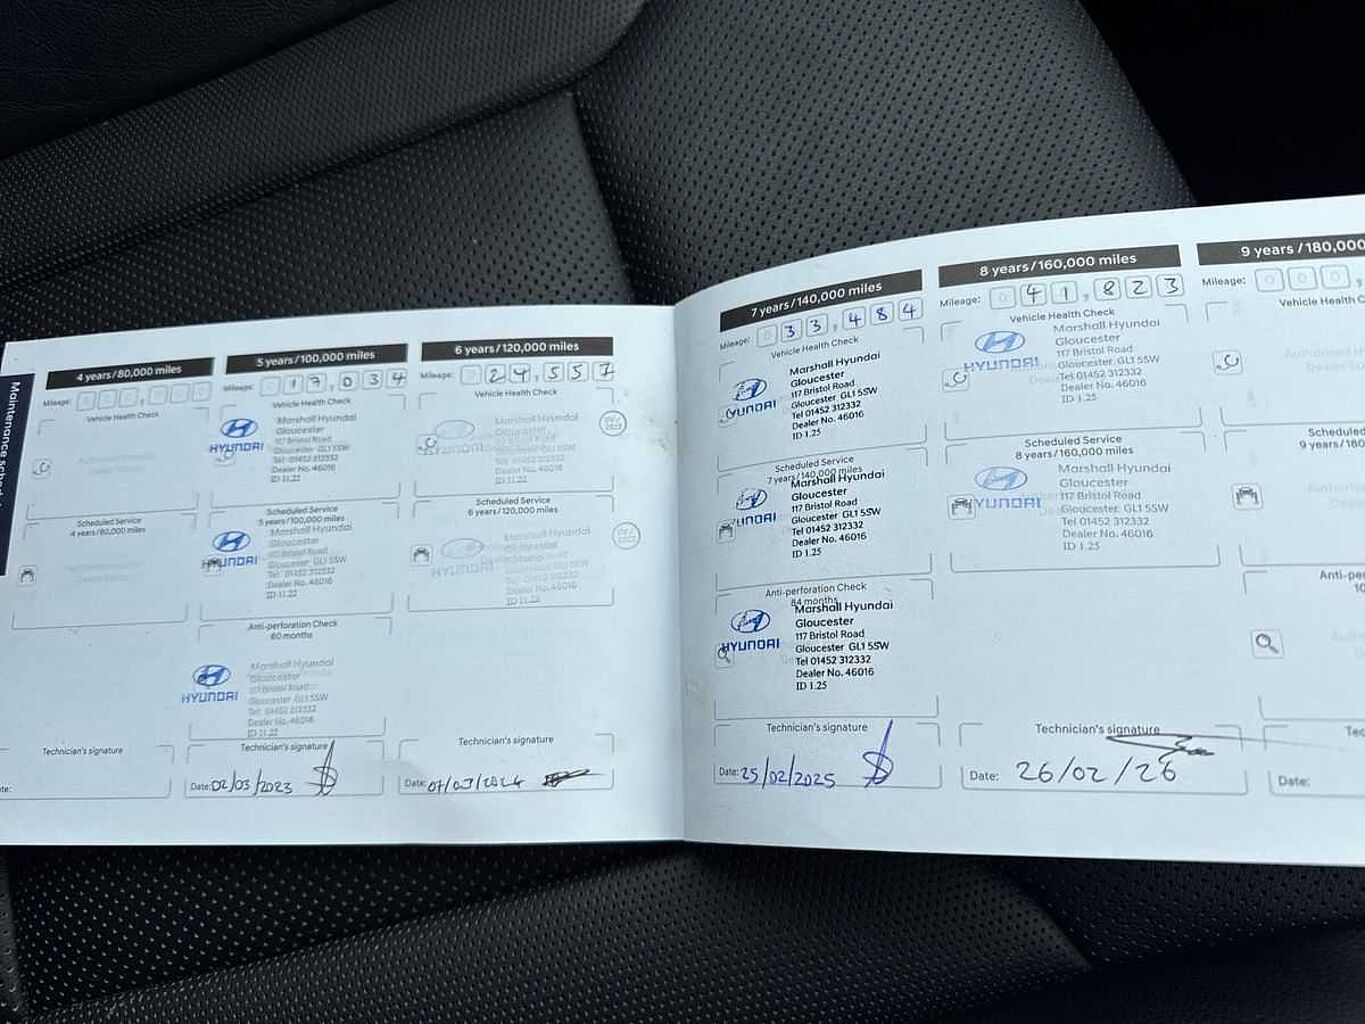 Maintenance
4 years/80,000 miles
Mileage:
Vehicle Health Check
Scheduled Service
4 years/80,000 miles
Technician's signature
5 years/100,000 miles
Mileage: 17,034
Vehicle Health Check
HYUNDAI
Marshall Hyundai
Gloucester
117 Bristol Road
Gloucester GL1 5SW
Tel: 01452 312332
Dealer No. 46016
ID 11.22
Scheduled Service
5 years/100,000 miles
HYUNDAI
Marshall Hyundai
Gloucester
117 Bristol Road
Gloucester GL1 5SW
Tel: 01452 312332
Dealer No. 46016
ID 11.22
Anti-perforation Check
60 months
HYUNDAI
Marshall Hyundai
Gloucester
117 Bristol Road
Gloucester GL1 5SW
Tel: 01452 312332
Dealer No. 46016
ID 11.22
Technician's signature
Date: 02/03/2023
6 years/120,000 miles
Mileage: 24,557
Vehicle Health Check
HYUNDAI
Marshall Hyundai
Gloucester
117 Bristol Road
Gloucester GL1 5SW
Tel: 01452 312332
Dealer No. 46016
ID 11.22
Scheduled Service
6 years/120,000 miles
HYUNDAI
Marshall Hyundai
Gloucester
117 Bristol Road
Gloucester GL1 5SW
Tel: 01452 312332
Dealer No. 46016
ID 11.22
Technician's signature
Date:
7 years/140,000 miles
Mileage: 33,484
Vehicle Health Check
HYUNDAI
Marshall Hyundai
Gloucester
117 Bristol Road
Gloucester GL1 5SW
Tel 01452 312332
Dealer No. 46016
ID 1.25
Scheduled Service
7 years/140,000 miles
HYUNDAI
Marshall Hyundai
Gloucester
117 Bristol Road
Gloucester GL1 5SW
Tel 01452 312332
Dealer No. 46016
ID 1.25
Anti-perforation Check
84 months
HYUNDAI
Marshall Hyundai
Gloucester
117 Bristol Road
Gloucester GL1 5SW
Tel 01452 312332
Dealer No. 46016
ID 1.25
Technician's signature
Date: 25/02/2025
8 years/160,000 miles
Mileage: 41,823
Vehicle Health Check
HYUNDAI
Marshall Hyundai
Gloucester
117 Bristol Road
Gloucester GL1 5SW
Tel 01452 312332
Dealer No. 46016
ID 1.25
Scheduled Service
8 years/160,000 miles
HYUNDAI
Marshall Hyundai
Gloucester
117 Bristol Road
Gloucester GL1 5SW
Tel 01452 312332
Dealer No. 46016
ID 1.25
Technician's signature
Date: 26/02/26
9 years/180,000
Mileage:
Vehicle Health C
Scheduled
9 years/180
Anti-per
Date: